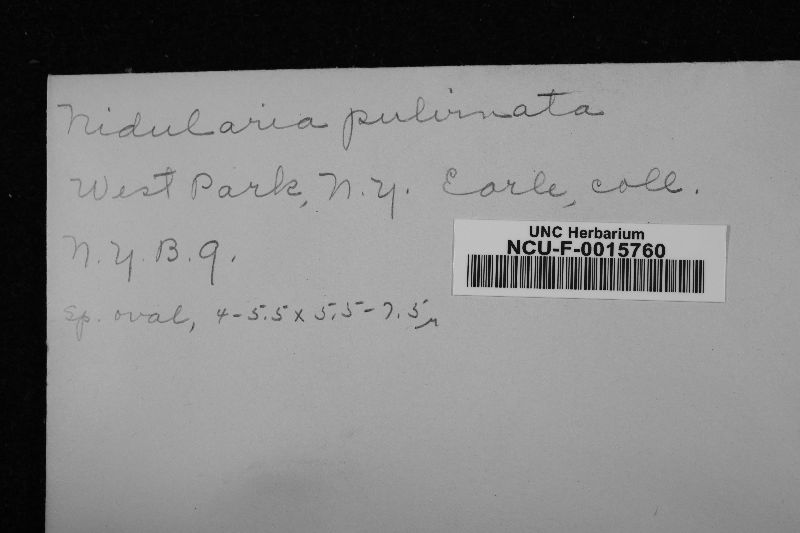 Nidularia pulvinata
West Park, N.Y. Earle, coll.
UNC Herbarium
NCU-F-0015760
N.Y.B.G.
Sp. oval, 4-5.5 x 5.5-7.5μ